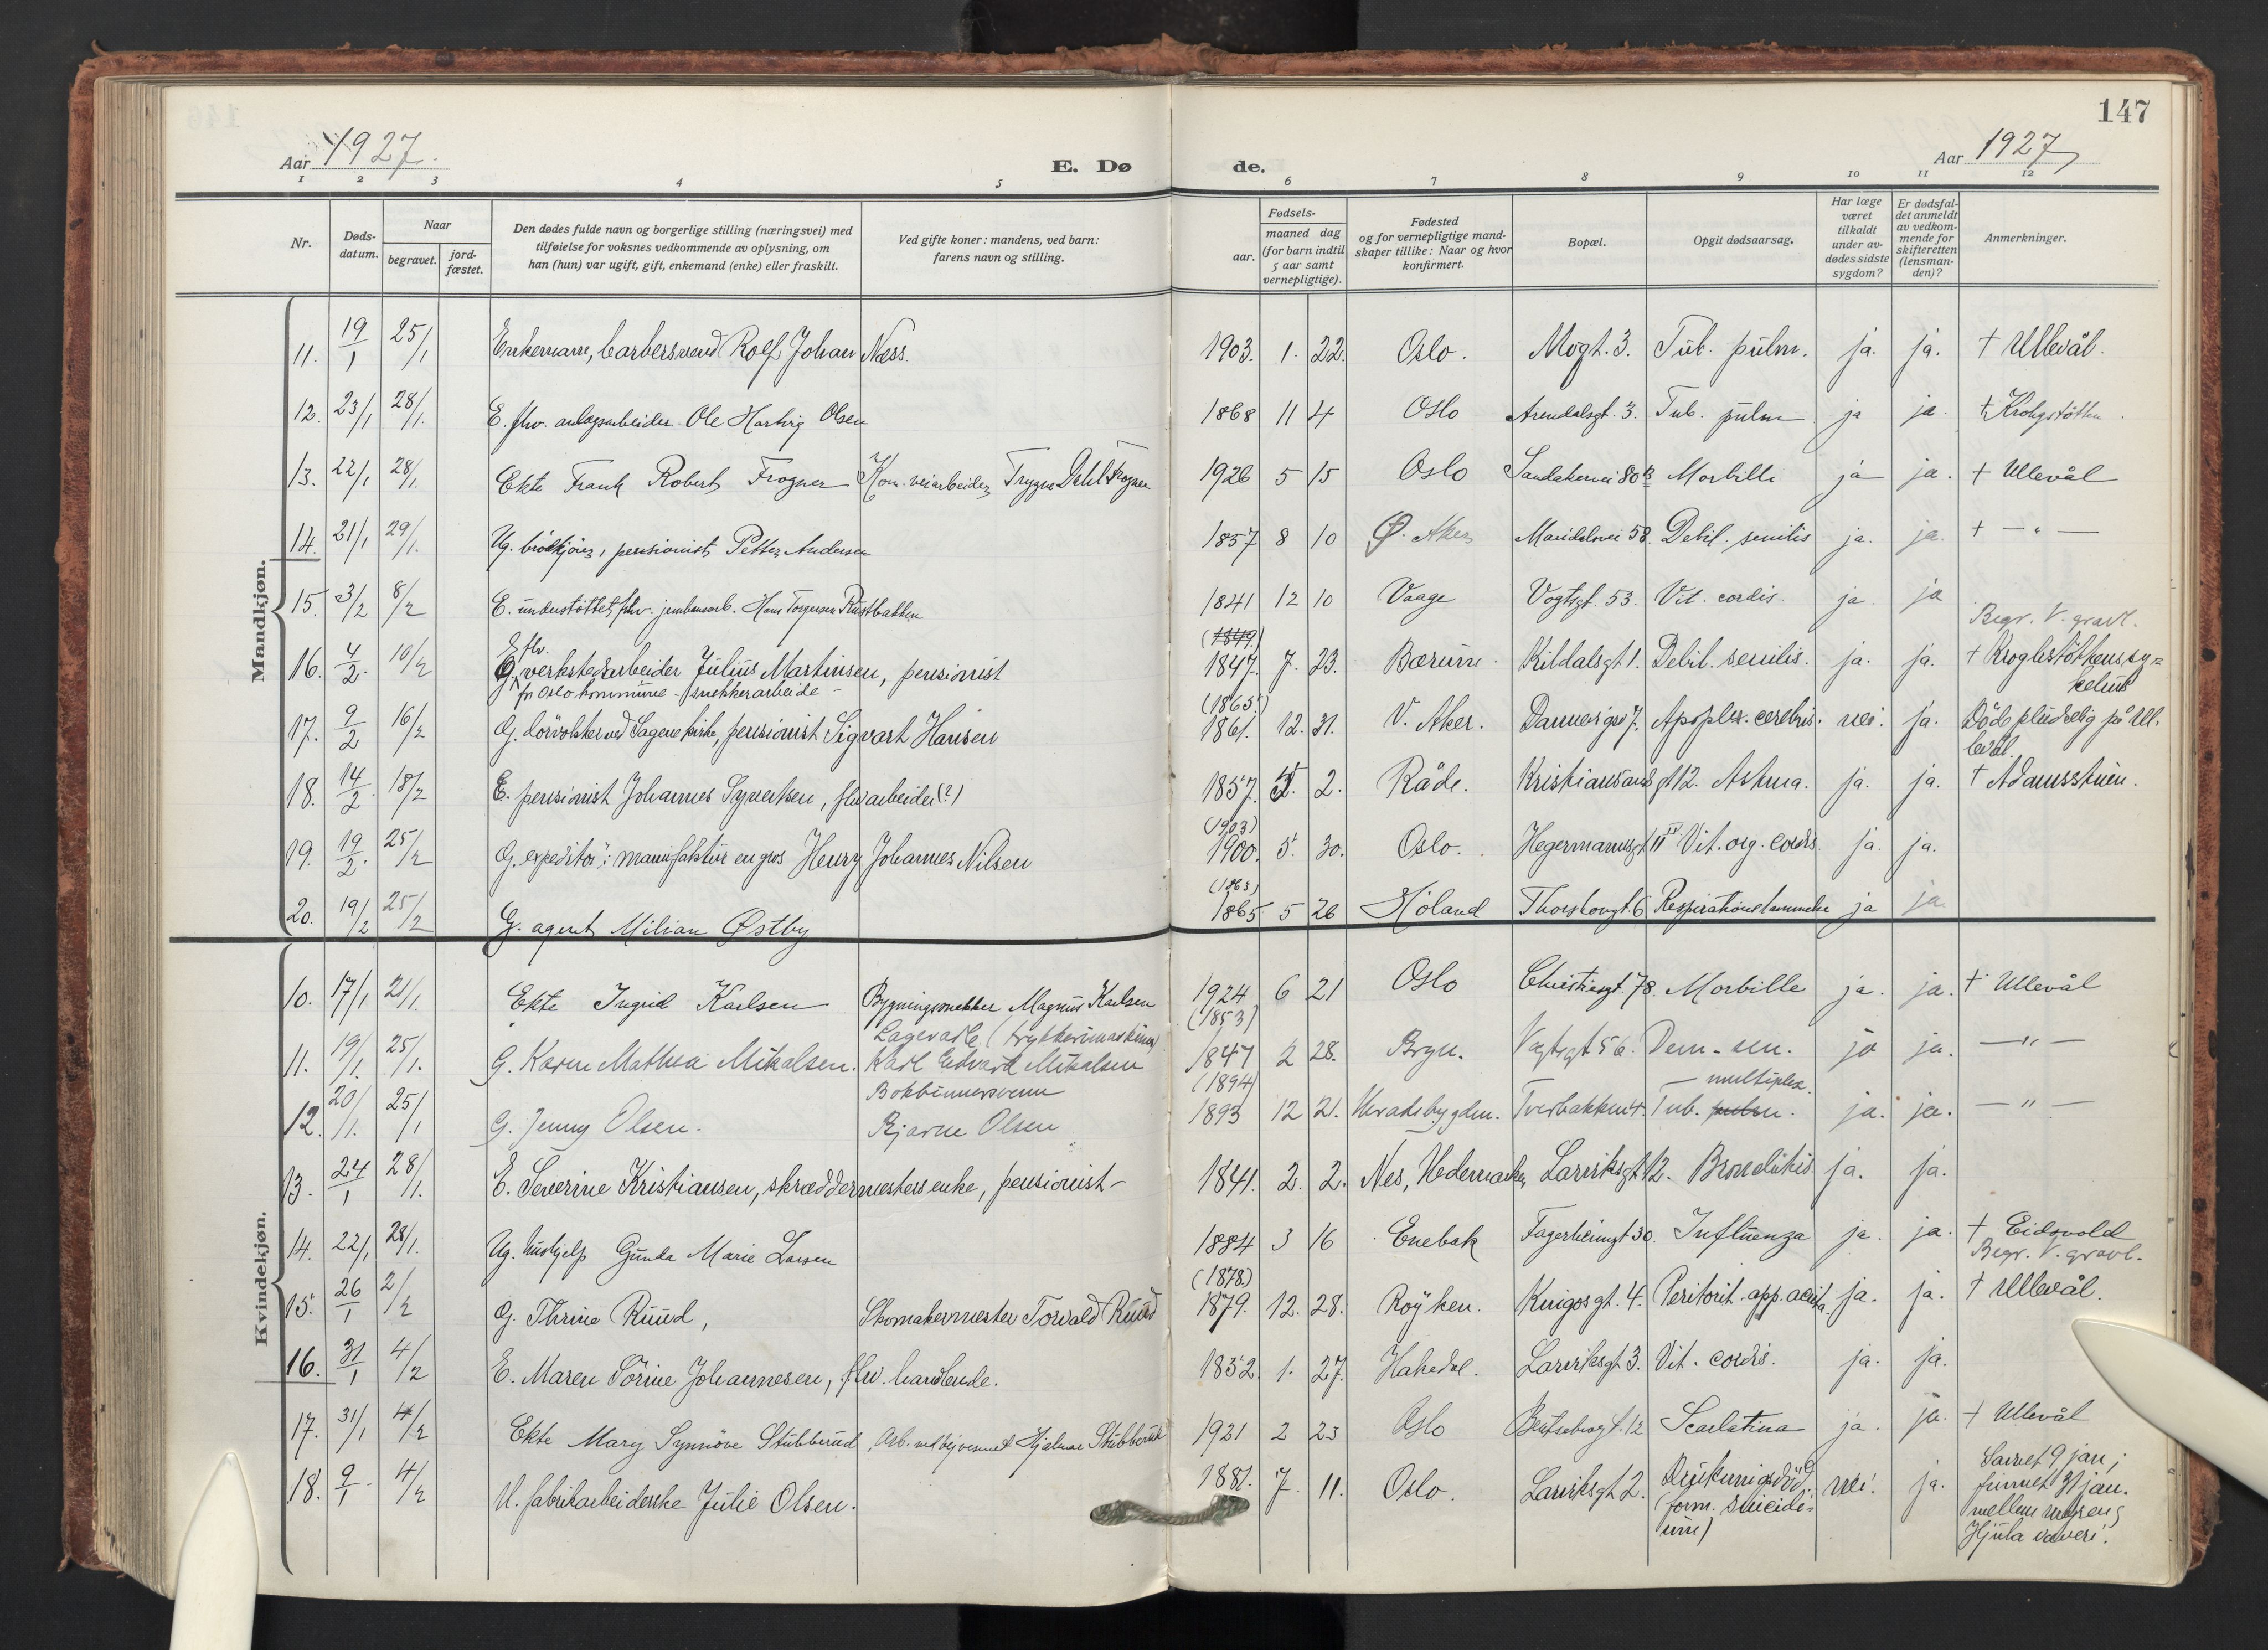 147
Aar 1927. E. Dø de. Aar 1927
1 2 3 4 5 6 7 8 9 10 11 12
Nr.
Døds-datum.
Naar
begravet.
jord-fæstet.
Den dødes fulde navn og borgerlige stilling (næringsvei) med
tilføielse for voksnes vedkommende av oplysning, om
han (hun) var ugift, gift, enkemand (enke) eller fraskilt.
Ved gifte koner: mandens, ved barn:
farens navn og stilling.
Fødsels-
aar.
maaned dag
(for barn indtil
5 aar samt
vernepligtige).
Fødested
og for vernepligtige mand-
skaper tillike: Naar og hvor
konfirmert.
Bopæl.
Opgit dødsaarsag.
Har læge
været
tilkaldt
under av-
dødes sidste
sygdom?
Er dødsfal-
det anmeldt
av vedkom-
mende for
skifteretten
(lensman-
den)?
Anmerkninger.
Mandkjøn.
11. 19/1 25/1 Enkemann, barbersvend Rolf Johan Næss. 1903. 1. 22. Oslo. Mogt. 3. Tub. pulm. ja. ja. + Ullevål.
12. 23/1 28/1. E. fhv. anlægsarbeider Ole Hartvig Olsen 1868 11 4 Oslo Arendalsgt. 3. Tub. pulm ja ja. + Krohgstötten.
13. 22/1 28/1. Ekte Frank Robert Frogner Kom. veiarbeider Trygve Dahl Frogner 1926 5 15 Oslo Sandakervei 80 Morbilli ja ja. + Ullevål
14. 21/1 29/1. Ug. pensionist Petter Andersen 1857 8 10 Ø. Aker Maridalsvei 58. Debil. senilis ja. ja. + — " —
15. 3/2 8/2 E. understöttet, fhv. jernbanearb. Hans Torgersen Rustbakken 1841 12 10 Vaage Vogtsgt. 53. Vit. cordis. ja. ja
Begr. V. gravl.
E fhv. (1849)
16. 4/2. 10/2 G. verkstedsarbeider Julius Martinsen, pensionist 1847. 7. 23. Bærum. Kildalsgt 1. Debil. senilis. ja. ja. + Kroghstöttens sy=
kehus
fr Oslo kommune - snekkerarbeide - (1865.)
17. 9/2 16/2 G. dörvokter ved Sagene kirke, pensionist Sigvart Hansen 1861. 12. 31. V. Aker. 7. Apoplex. cerebris. nei. ja. Döde pludselig på Ul.
levål.
18. 14/2. 18/2 E. pensionist Johannes Syvertsen, fhv arbeider(?) 1857. 2. Råde. Kristiansands gt 12. Asthma. ja. ja. + Adamsstuen.
(1903)
19. 19/2. 25/2 G. expeditör i manufaktur en gros Henry Johannes Nilsen 1900. 5. 30. Oslo. Hegermannsgt 11 IV Vit. org. cordis. ja. ja.
(1863)
20. 19/2 25/2 G. agent Milian Østby 1865 5 26 Höland Thorshovgt. 6 Respirationslammelse ja ja
Kvindekjøn.
10. 17/1 21/1. Ekte Ingrid Karlsen Bygningssnekker Magnus Karlsen 1924 6 21 Oslo Christiesgt. 78. Morbille ja. ja. + Ullevål
(1853)
11. 19/1. 25/1. G. Karen Mathea Mikalsen. Karl Edvard Mikalsen 1847 2 28. Bryn. Vogtsgt 56. Dem. sen. ja ja. — " —
(1894) multiplex.
Bokbinnersvenn
12. 20/1. 25/1 G. Jenny Olsen. Bjarne Olsen 1893 12 21. Heradsbygden. Tverbakken 4. Tub. pulm. ja. ja. — " —
13. 24/1 28/1. E. Severine Kristiansen, skræddermesters enke, pensionist - 1841. 2. 2. Nes, Hedemarken Larviksgt 12. Bronchitis ja. ja.
14. 22/1 28/1. Ug. hushjelp Gunda Marie Larsen 1884 3 16 Enebak Fagerheimgt 30. Influenza ja. ja. + Eidsvold
Begr. V. gravl.
(1878.)
15. 26/1 2/2 G. Thrine Ruud, Skomakermester Torvald Ruud 1879. 12. 28. Röyken. Kingosgt. 4. Peritonit. app. acuta ja. ja. + Ullevål.
16. 31/1 4/2 E. Maren Sörine Johannesen, fhv. handlende. 1852. 1. 27. Hakedal. Larviksgt 3. Vit. cordis. ja. ja.
17. 31/1 4/2 Ekte Mary Synnöve Stubberud Arb. ved Hjalmar Stubberud 1921 2 23 Oslo Bentsebrogt. 12 Scarlatina ja. ja. + Ullevål
18. 9/1 4/2 U. fabrikarbeiderske Julie Olsen. 1881. 7. 11. Oslo. Larviksgt 2. Drukningsdöd nei. ja. Savnet 9 jan;
(form. suicidi= funnet 31 jan.
um) mellem
Hjula væveri.